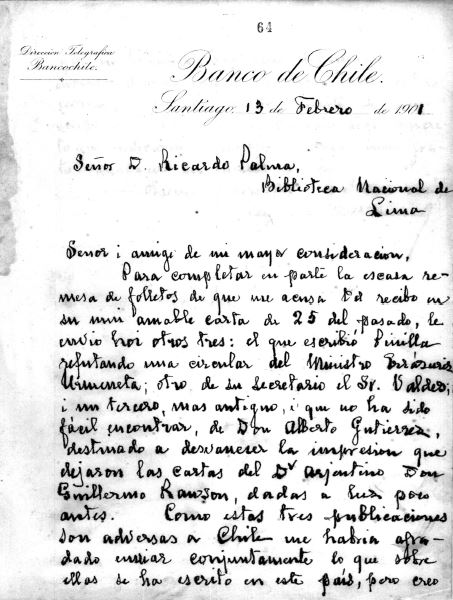 64
Direccion Telegrafica
Bancochile.
Banco de Chile.
Santiago, 13 de Febrero de 1901
Señor D. Ricardo Palma,
Biblioteca Nacional de
Lima
Señor i amigo de mi mayor consideracion,
Para completar en parte la escasa re-
mesa de folletos de que me acusa Vd recibo en
su mui amable carta de 25 del pasado, le
envio hoi otros tres: el que escribió Pinilla
refutando una circular del Ministro Errázuriz
Urmeneta; otro, de su secretario el Sr. Valdes;
i un tercero, mas antiguo, i que no ha sido
fácil encontrar, de Don Alberto Gutierrez,
destinado a desvanecer la impresion que
dejaron las cartas del Dr arjentino Don
Guillermo Rawson, dadas a luz poco
antes. Como estas tres publicaciones
son adversas a Chile me habria agra-
dado enviar conjuntamente lo que sobre
ellas se ha escrito en este país, pero creo